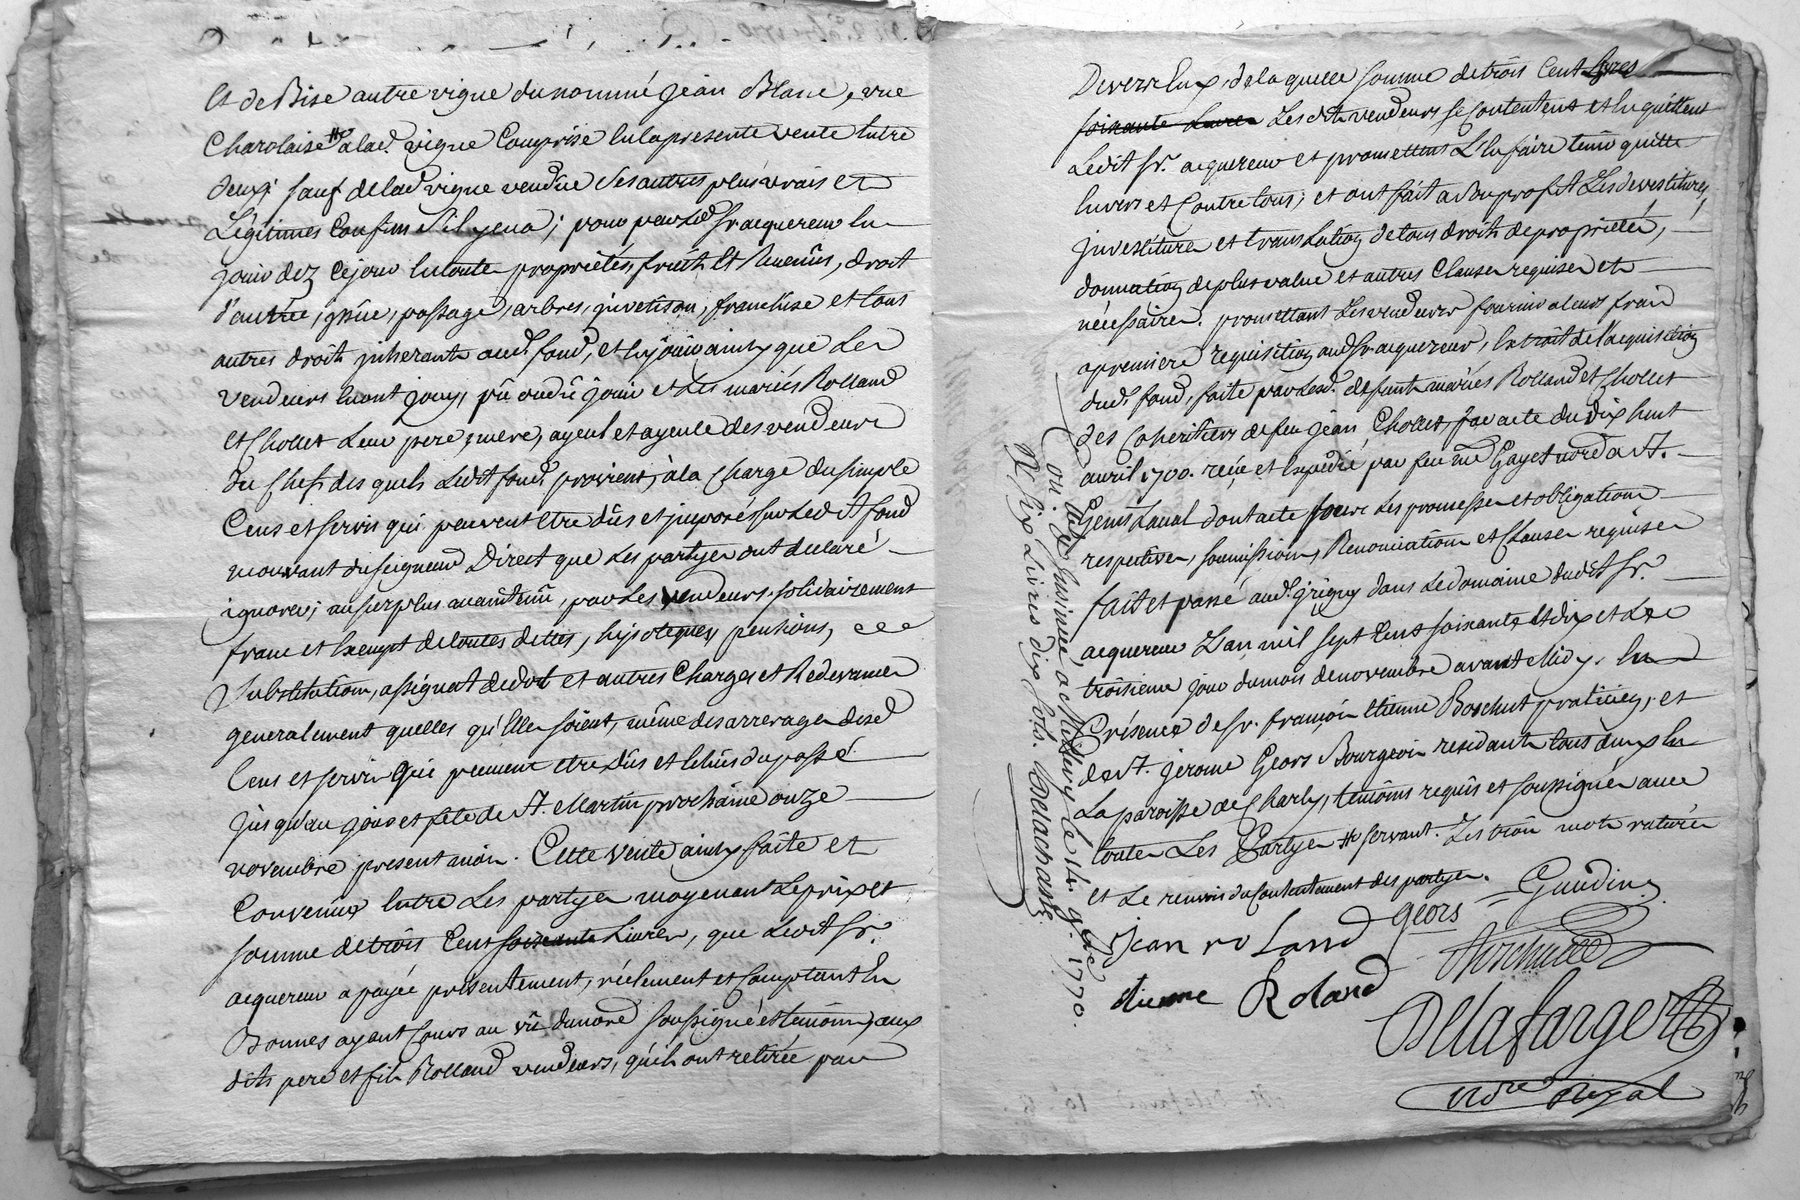 Et de Bise autre vigne du nommé jean Blanc, vüe
Charolaise # a lad. vigne Comprise En la presente vente Entre
deux; sauf de lad. vigne vendüe ses autres plus vrais et
Légitimes Confins s'il y en a; pour par led. Sr. acquereur En
jouir dez Cejour En toute proprietés, fruits Et Revenûs, droit
d'entrée, jssüe, passage, arbres, juvetison, franchise et tous
autres droits jnherants aud. fond, et En joüir ainsy que Les
vendeurs En ont jouy, pû ou dû joüir et Les mariés Rolland
et Chollet Leur pere, mere, ayeul et ayeule des vendeurs
du Chef des quels Ledit fond provient; à la Charge du simple
Cens et servis qui peuvent être dûs et jmposés sur Led. fond
mouvant du seigneur Direct que Les partyes ont declaré
ignorer; au surplus maintenü, par Les vendeurs solidairement
franc et Exempt de toutes dettes, hipoteques, pensions,
Substitution, assignat de dot et autres Charges et Redevances
generalement quelles qu'Elles soient, même des arrerages desd.
Cens et servis qui peuvent etre dûs et Echûs du passé
jusqu'au jour et fête de St. Martin prochaine onze
novembre present mois. Cette vente ainsy faite et
Convenüe Entre Les partyes moyenant Le prix et
somme de trois Cent soixante Livres, que Ledit Sr.
acquereur a payée présentement, réelement et Comptant En
Bonnes ayant Cours au vû du nore. soussigné et temoins, aux
dits pere et fils Rolland vendeurs, qu'ils ont retirée par
Devers Eux, de la quelle somme de trois Cent Livres
soixante Livres Lesdits vendeurs se Contentent et En quittent
Ledit Sr. acquereur et promettent L'En faire tenir quitte
Envers et Contre tous; et ont fait a son profit Les devestitures,
jnvestiture et translation de tous droits de propriétés,
donnation de plus value et autres Clauses requises et
nécéssaires. promettant Les vendeurs fournir a leurs frais
a premiere requisition aud. Sr. acquereur, Extrait de l'acquisition
dud. fond, faite par Lesd. defunts mariés Rolland et Chollet
des Coheritiers de feu jean Chollet, par acte du dix huit
avril 1700. reçu et Expedié par feu me. Gayet nore. a St.
Genis Laval dont acte sous Les promesses et obligations
respectives, soumissions, Renonciations et Clauses requises
fait et passé aud. grigny dans Le domaine dudit Sr.
acquereur L'an mil sept Cent soixante Et dix et Le
troisieme jour du mois de novembre avant Midy. En
Présence de Sr. françois Etienne Boschut praticien, et
de Sr. jerome Geors Bourgeois residants tous deux En
La paroisse de Charly, temoins requis et soussignés avec
toutes Les Partyes # servant. Les trois mots raturés
et Le renvoi du Contentement des partyes.
Gaudin
Geors
jean ro Land
Boschut
etienne Roland
Delafarge
Nore. Royal
Con. et Insinué a Millery le 14. 9bre. 1770.
R. six Livres dix sols. Delachant